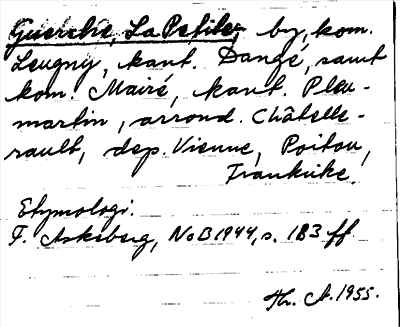 Guerche, La Petite, by, kom.
Leugny, kant. Dangé, samt
kom. Mairé, kant. Pleu-
martin, arrond. Châtelle-
rault, dep. Vienne, Poitou,
Frankrike.
Etymologi.
F. Askeberg, NoB 1944, s. 183 ff.
Hr. A. 1955.